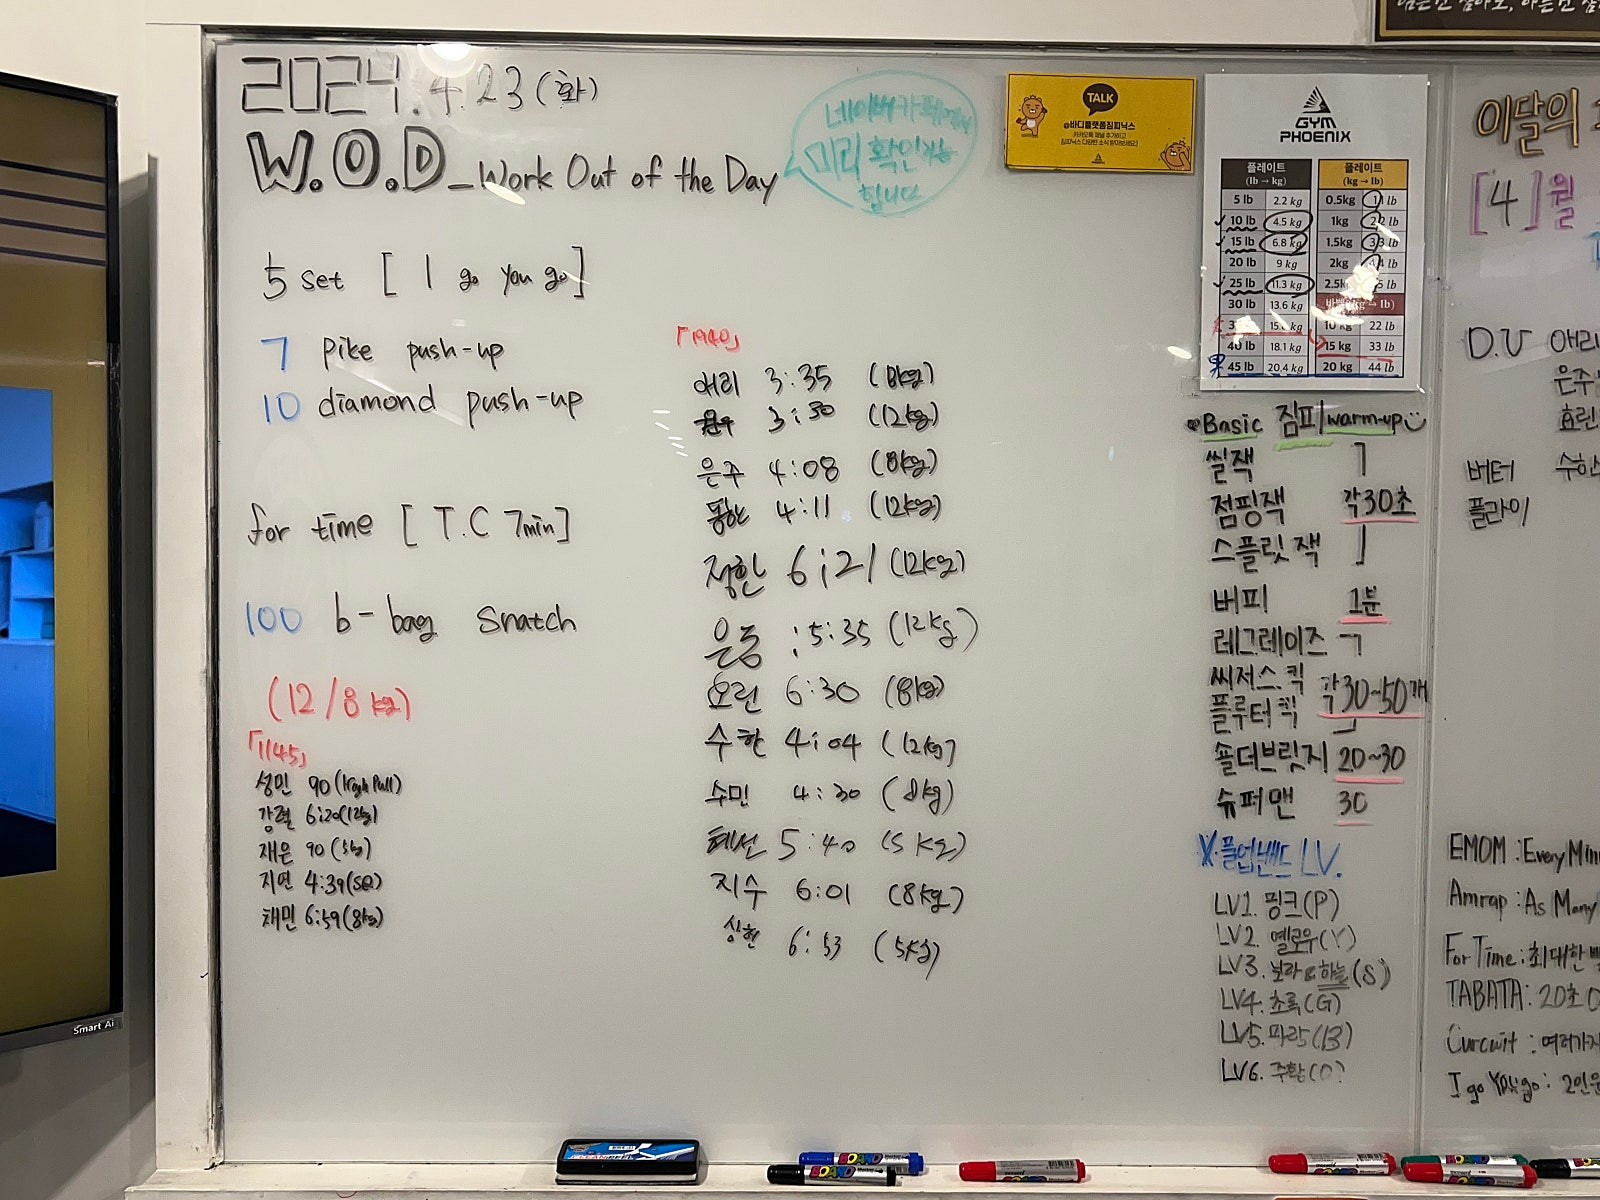 2024.4.23(화)
W.O.D_Work Out of the Day
네이버카페에서
미리 확인가능
합니다
5 set [ I go you go ]
7 pike push-up
10 diamond push-up
for time [ T.C 7min ]
100 b-bag snatch
(12/8kg)
「1145」
성민 90(High Pull)
강렬 6:20(12kg)
재은 90(5kg)
지연 4:39(5kg)
채민 6:59(8kg)
「1940」
애리 3:35 (8kg)
3:30 (12kg)
은주 4:08 (8kg)
동한 4:11 (12kg)
정한 6:21 (12kg)
은동 :5:35 (12kg)
6:30 (8kg)
수한 4:04 (12kg)
수민 4:30 (8kg)
혜선 5:40 (5kg)
지수 6:01 (8kg)
상현 6:53 (5kg)
TALK
@바디플랫폼짐피닉스
카카오톡 채널 추가하고
짐피닉스 다양한 소식 받아보세요:)
GYM
PHOENIX
플레이트 플레이트
(lb → kg) (kg → lb)
5 lb 2.2 kg 0.5kg 1.1 lb
10 lb 4.5 kg 1kg 2.2 lb
15 lb 6.8 kg 1.5kg 3.3 lb
20 lb 9 kg 2kg lb
25 lb 11.3 kg lb
30 lb 13.6 kg
10 kg 22 lb
40 lb 18.1 kg 15 kg 33 lb
45 lb 20.4 kg 20 kg 44 lb
Basic 짐피/warm-up
씰잭
점핑잭 각30초
스플릿잭
버피 1분
레그레이즈
씨저스킥 각30~50개
플루터킥
숄더브릿지 20~30
슈퍼맨 30
풀업밴드 LV.
LV1. 핑크(P)
LV2. 옐로우(Y)
LV3. 보라&하늘(S)
LV4. 초록(G)
LV5. 파랑(B)
LV6. 주황(O)
이달의
[4]월
D.U 애리
은주
효린
버터 수한
플라이
EMOM : Every Min
Amrap : As Many
For Time : 최대한
TABATA : 20초
Curcuit : 여러가지
I go You go : 2인
Smart Ai
BOARD
BOARD
BOARD
BOARD